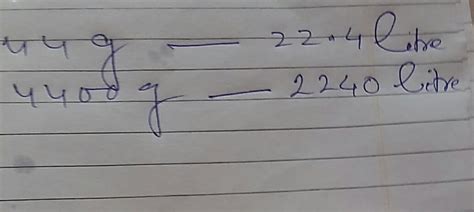 44 g — 22.4 litre
4400 g — 2240 litre